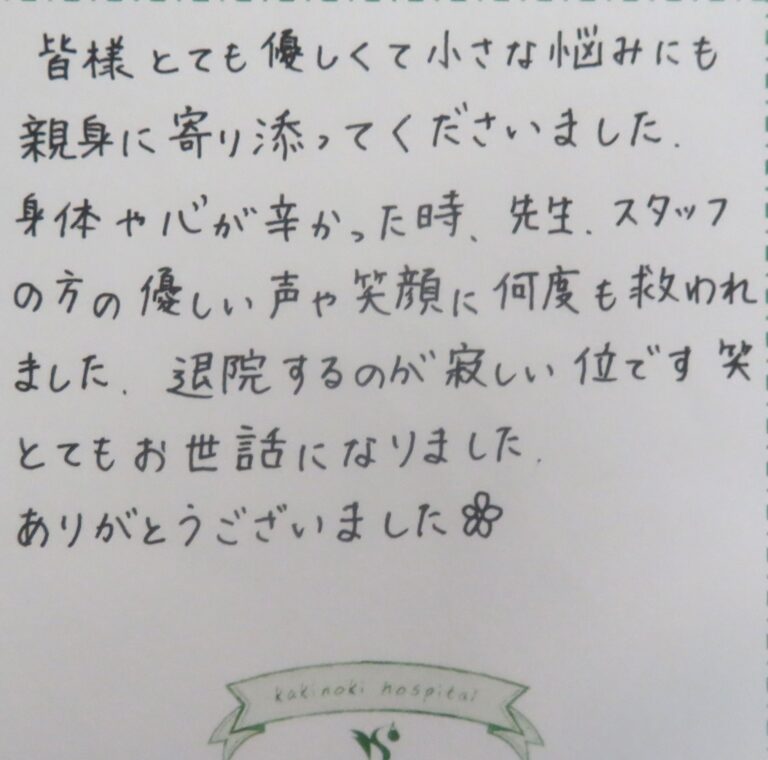 皆様とても優しくて小さな悩みにも
親身に寄り添ってくださいました.
身体や心が辛かった時、先生.スタッフ
の方の優しい声や笑顔に何度も救われ
ました.退院するのが寂しい位です笑
とてもお世話になりました.
ありがとうございました
kakinoki hospital